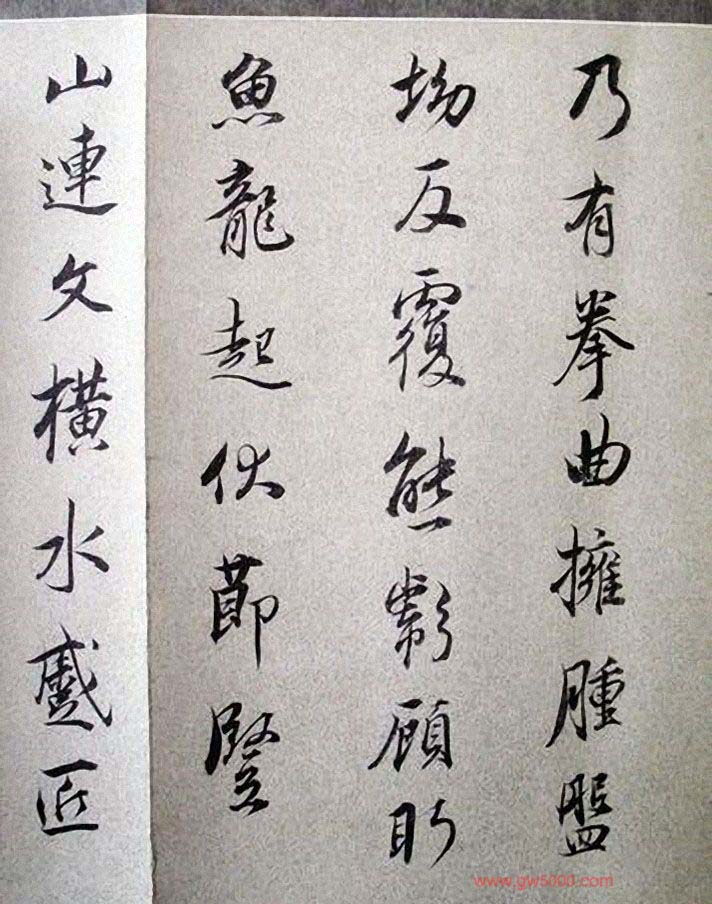 乃有拳曲擁腫盤
坳反覆熊彪顧盼
魚龍起伏節豎
山連文橫水蹙匠
www.gw5000.com